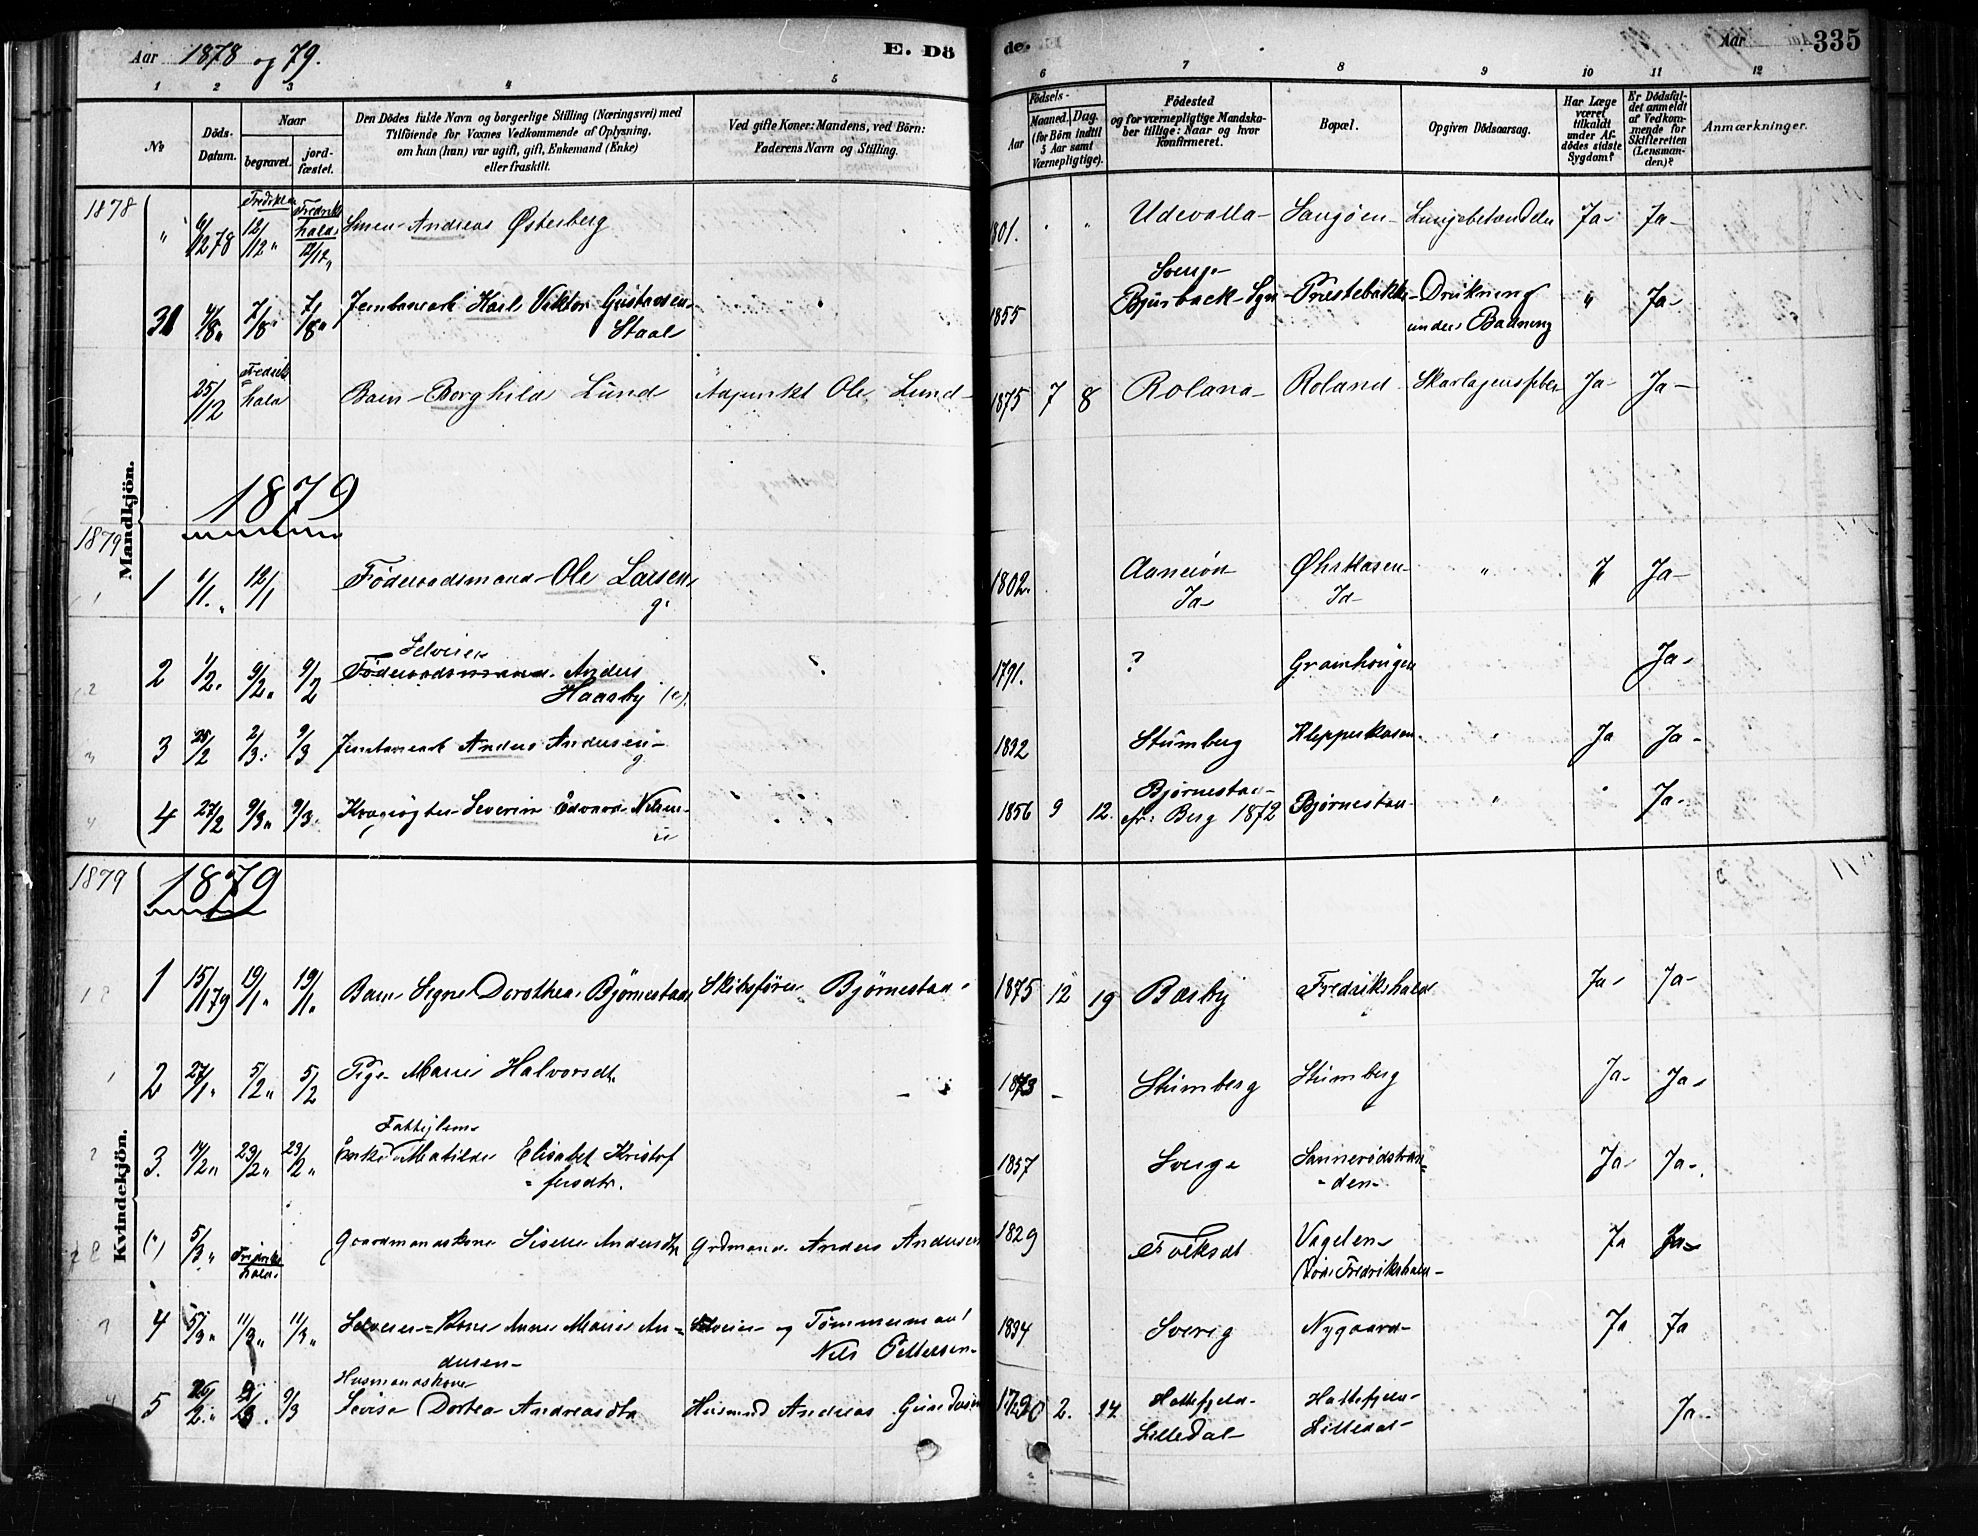 Aar 1878 og 79.
E. Dö
de.
Aar
335
1 2 3 4 5 6 7 8 9 10 11 12
№
Döds-
Datum.
Naar
begravet.
jord-
fæstet.
Den Dödes fulde Navn og borgerlige Stilling (Næringsvei) med
Tilföiende for Voxnes Vedkommende af Oplysning,
om hun (han) var ugift, gift, Enkemand (Enke)
eller fraskilt.
Ved gifte Koner: Mandens, ved Börn:
Faderens Navn og Stilling.
Födsels-
Aar
Maaned. Dag.
(for Börn indtil
5 Aar samt
Værnepligtige).
Födested
og for værnepligtige Mandska-
ber tillige: Naar og hvor
konfirmeret.
Bopæl.
Opgiven Dödsaarsag.
Har Læge
været
tilkaldt
under Af-
dödes sidste
Sygdom?
Er Dödsfal-
det anmeldt
af Vedkom-
mende for
Skifteretten
(Lensman-
den)?
Anmærkninger.
Mandkjön.
1878
" 6/12 78 12/12 " Fredrikshald 12/12 " Andreas Østerberg 1801. " " Udevalla Ja Ja
31 4/8 " 7/8 " 7/8 " Jernbanearb Karl Viktor Gustavsen
Staal
1855 Sverge
Bjurback Sgn Prestebakke Drukning
under Badning " Ja
25/12 Fredriks
hald Barn Borghild Lund Adjunkt Ole Lund 1875 7 8 Roland Roland Skarlagensfeber Ja Ja
1879
1879
1 1/1. " 12/1 Föderaadsmand Ole Larsen
g. 1802. Id Id " Ja
2 1/2. 9/2. " 9/2 Selveier
Föderaadsmand. Anders
Haasby (e). 1791. ? Gramhougen Ja
3 2/3. 9/3 Jernbanearb Anders Andersen
g 1832 Stumberg Klepperkasen " Ja Ja
4 27/2 9/3 " 9/3. Severin Edvard Nilsen
u 1856 9 12. Bjørnestad
Berg 1872 Bjørnestad " " Ja
Kvindekjön.
1879
1879
1 15/1 79 19/1 " 19/1 " Barn Signe Dorothea Bjørnestad Skibsfører Bjørnestad 1875 12 19 Bærby Fredrikshald Ja Ja
2 27/1 " 5/2 " 5/2 Pige Marie Halvorsdt. 1873 Stumberg Stumberg Ja Ja
3. 14/2 " 23/2 " 23/2 " Fattiglem
Enke Matilde Elisabet Kristof
fersdtr. 1857 Sverge Sannerødstran=
den Ja Ja
(") 5/3 " Fredriks
hald. Gaardmandskone Andersdtr Grdmand Anders Andersen 1829 Vagelen
Fredrikshald Ja Ja
4 5/3 " 11/3 " 11/3 " Selveier=Kone Anne Marie An=
dersen Selveier og Tömmermand
Nils Pettersen 1834 Sverig Nygaard Ja Ja
5 26/2 " 9/3 Husmandskone
Dortea Andreasdtr Husmd Andreas 2. 14. Hattefjeld
Lilledal Hattefjeld
Lilledal Ja